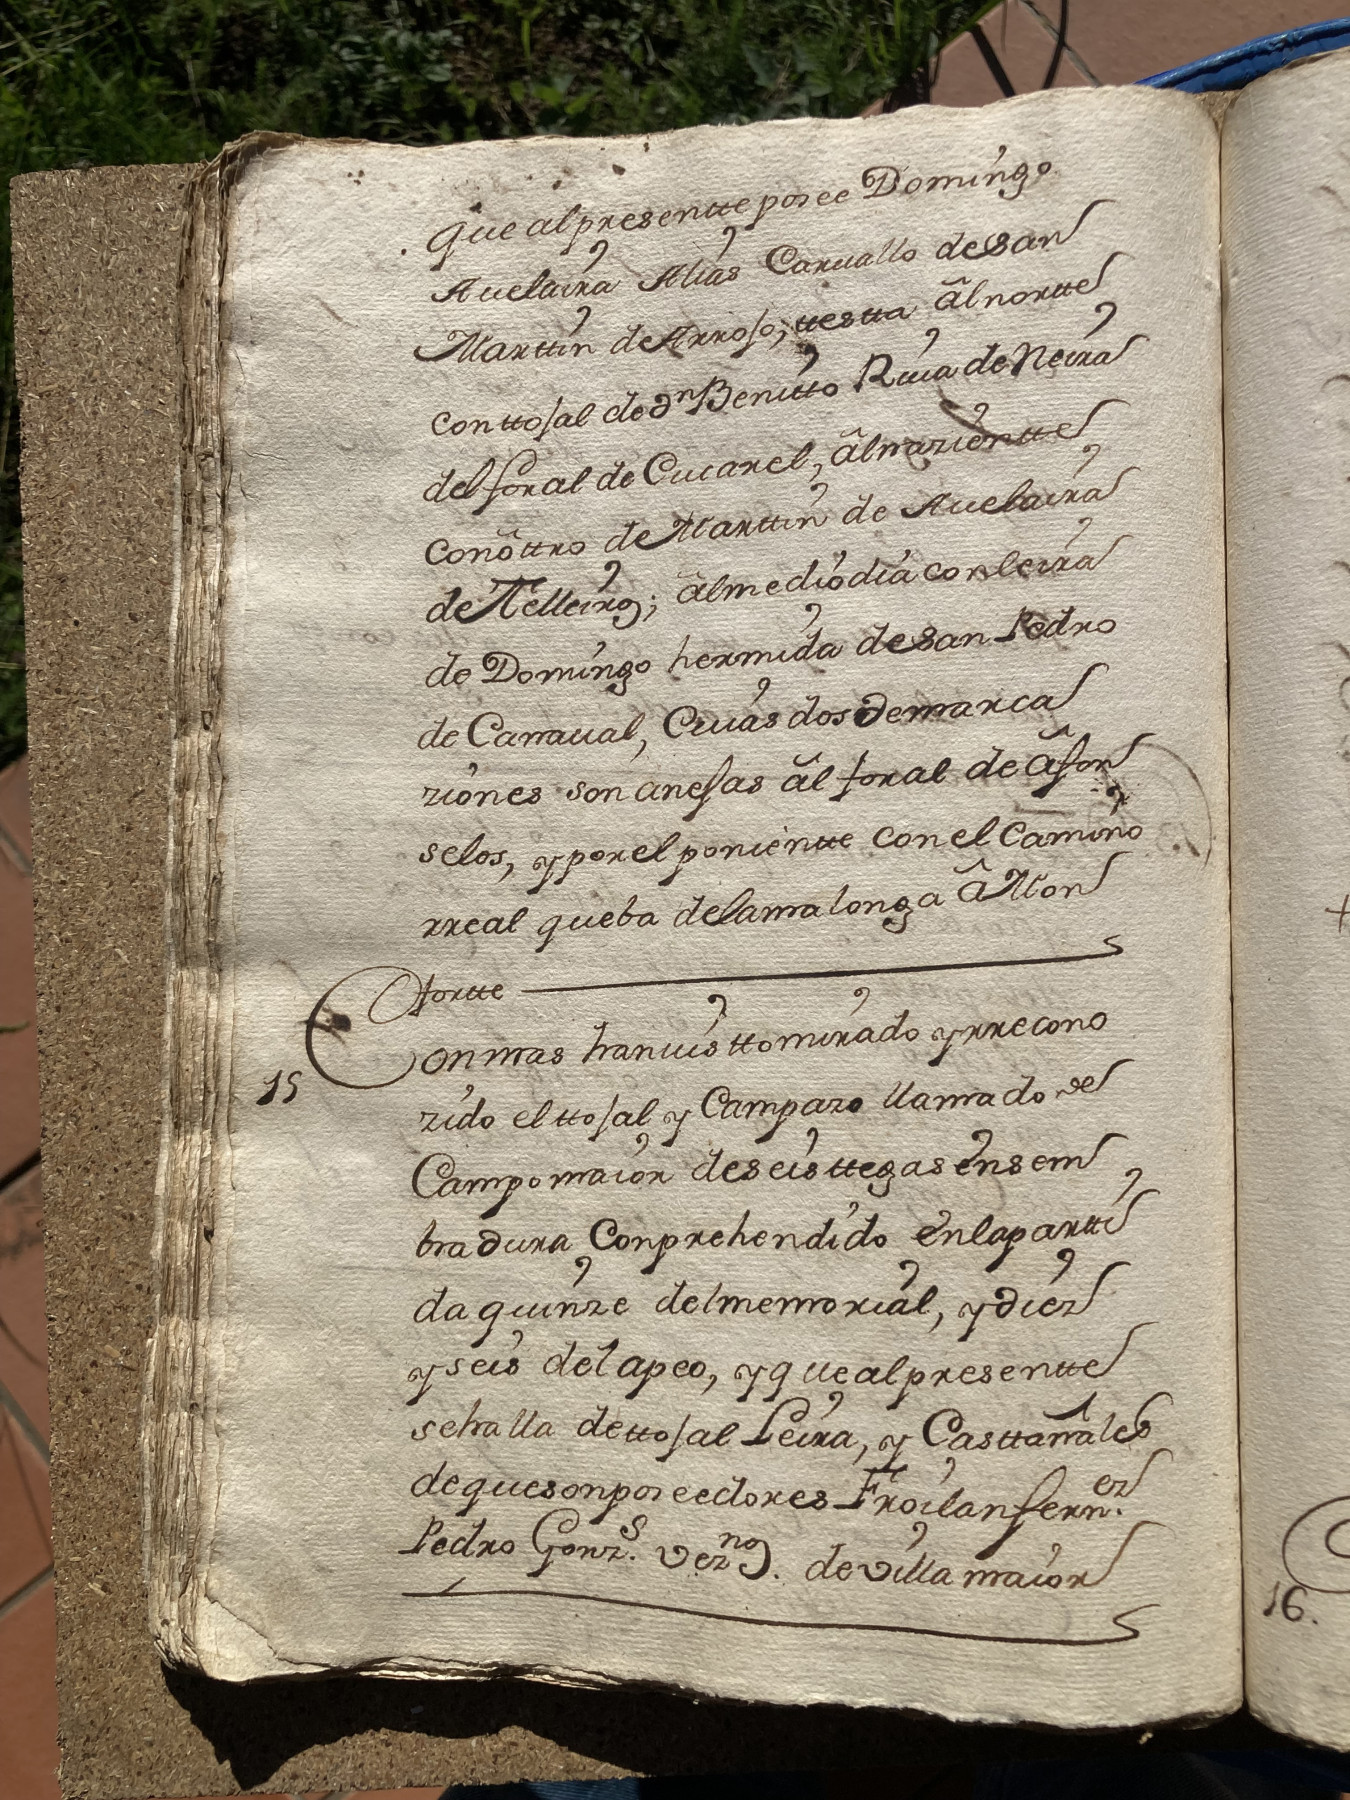 que al presentte posee Domingo
Auelaira Alias Caruallo de san
Marttin de Arrojo; ttestta âl nortte
con ttojal de dn Benitto Riua de Neira
del foral de Cuiarel, âl naziėntte
con ôttro de Marttin de Auelaira
de Telleiro; âl mediodia con leira
de Domingo hermida de san Pedro
de Canaual, Cuias dos demarca
ziones son anejas âl foral de âfon
selos, y por el ponientte con el Camino
rreal que ba de lama longa â Mon
fortte
15 Con mas han uistto mirado y rrecono
zido el ttojal y Campazo llamado de
Campo maior de seis ttegas en sem
bradura Conprehendido ên la partti
da quinze del memorial, y diez
y seis del apeo, y que al presentte
se halla de ttojal Leira, y Casttañales
de que son poseedores Froilan fernez.
Pedro Gonzs. veznos. de villa maior
16.